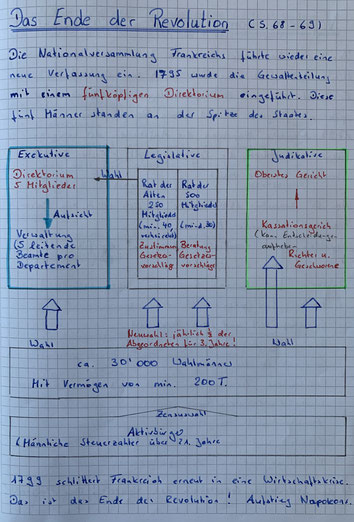 Das Ende der Revolution (S. 68-69)
Die Nationalversammlung Frankreichs führte wieder eine
neue Verfassung ein. 1795 wurde die Gewaltenteilung
mit einem fünfköpfigen Direktorium eingeführt. Diese
fünf Männer standen an der Spitze des Staates.
Exekutive
Direktorium
5 Mitglieder
Aufsicht
Verwaltung
(5 Leitende
Beamte pro
Departement
Wahl
Legislative
Rat der
Alten
250
Mitglieder
(min. 40,
verheiratet)
Zustimmung
Gesetzes-
vorschläge
Rat der
500
Mitglieder
(min. 30)
Beratung
Gesetzes-
vorschläge
Judikative
Oberstes Gericht
Kassationsgericht
(kann Entscheidungen
aufheben
Richter u.
Geschworene
Wahl
Neuwahl: jährlich ⅓ der
Abgeordneten für 3 Jahre!
Wahl
ca. 30'000 Wahlmänner
Mit Vermögen von min. 200T.
Zensuswahl
Aktivbürger
(Männliche Steuerzahler über 21 Jahre
1799 schlittert Frankreich erneut in eine Wirtschaftskrise.
Das ist das Ende der Revolution! Aufstieg Napoleons.